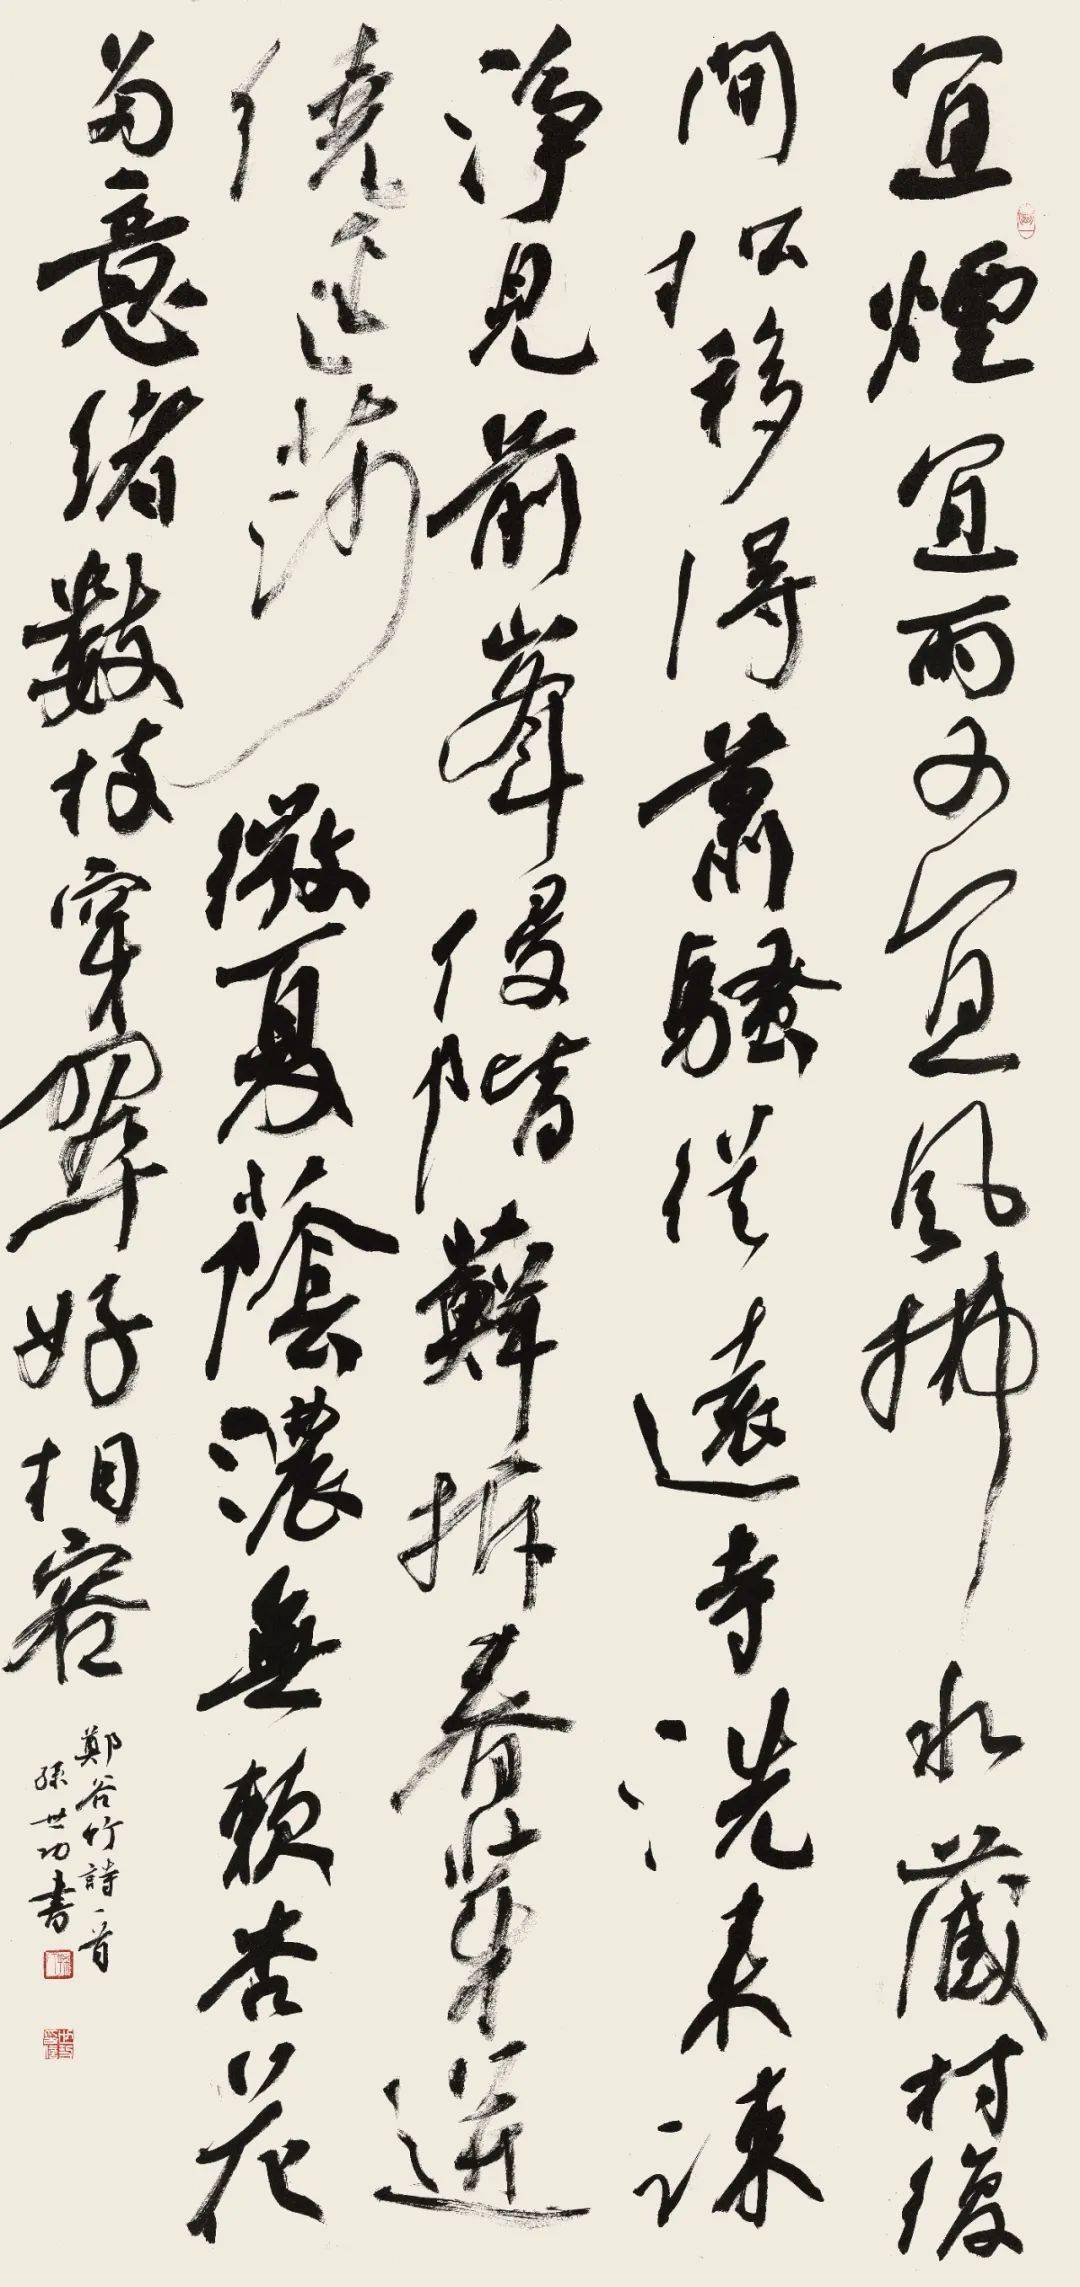 宜煙宜雨又宜風拂水藏村復
間松移得蕭騷從遠寺洗來疎
淨見前峯侵階蘚拆春芽迸
繞逕莎微夏蔭濃無賴杏花
多意緒數枝穿翠好相容
鄭谷竹詩一首
孫世功書